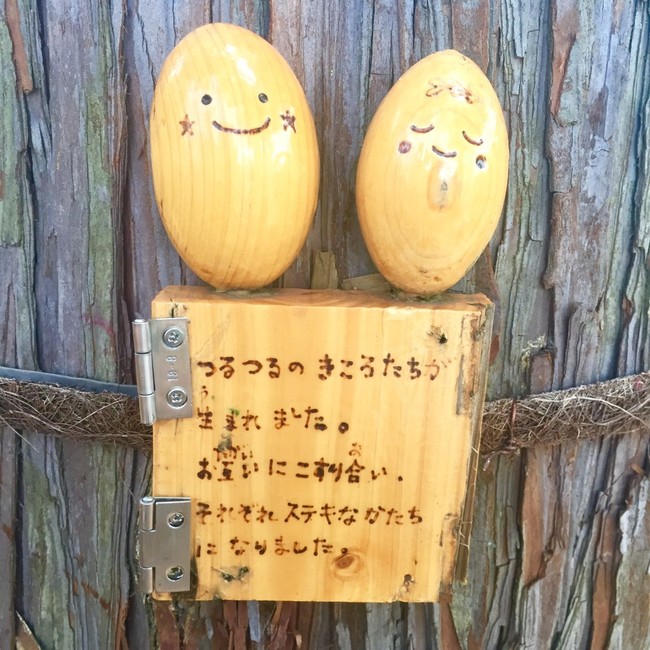 つるつるの きころたちが
う
生まれ ました。
たが お
お互いにこすり合い、
それぞれ ステキなかたち
に なりました。
18-8